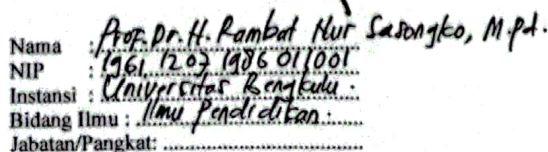 Nama : Prof. Dr. H. Rambat Nur Sasongko, M.Pd.
NIP : 1961 1207 1986 011001
Instansi : Universitas Bengkulu.
Bidang Ilmu : Ilmu Pendidikan.
Jabatan/Pangkat: ........................................